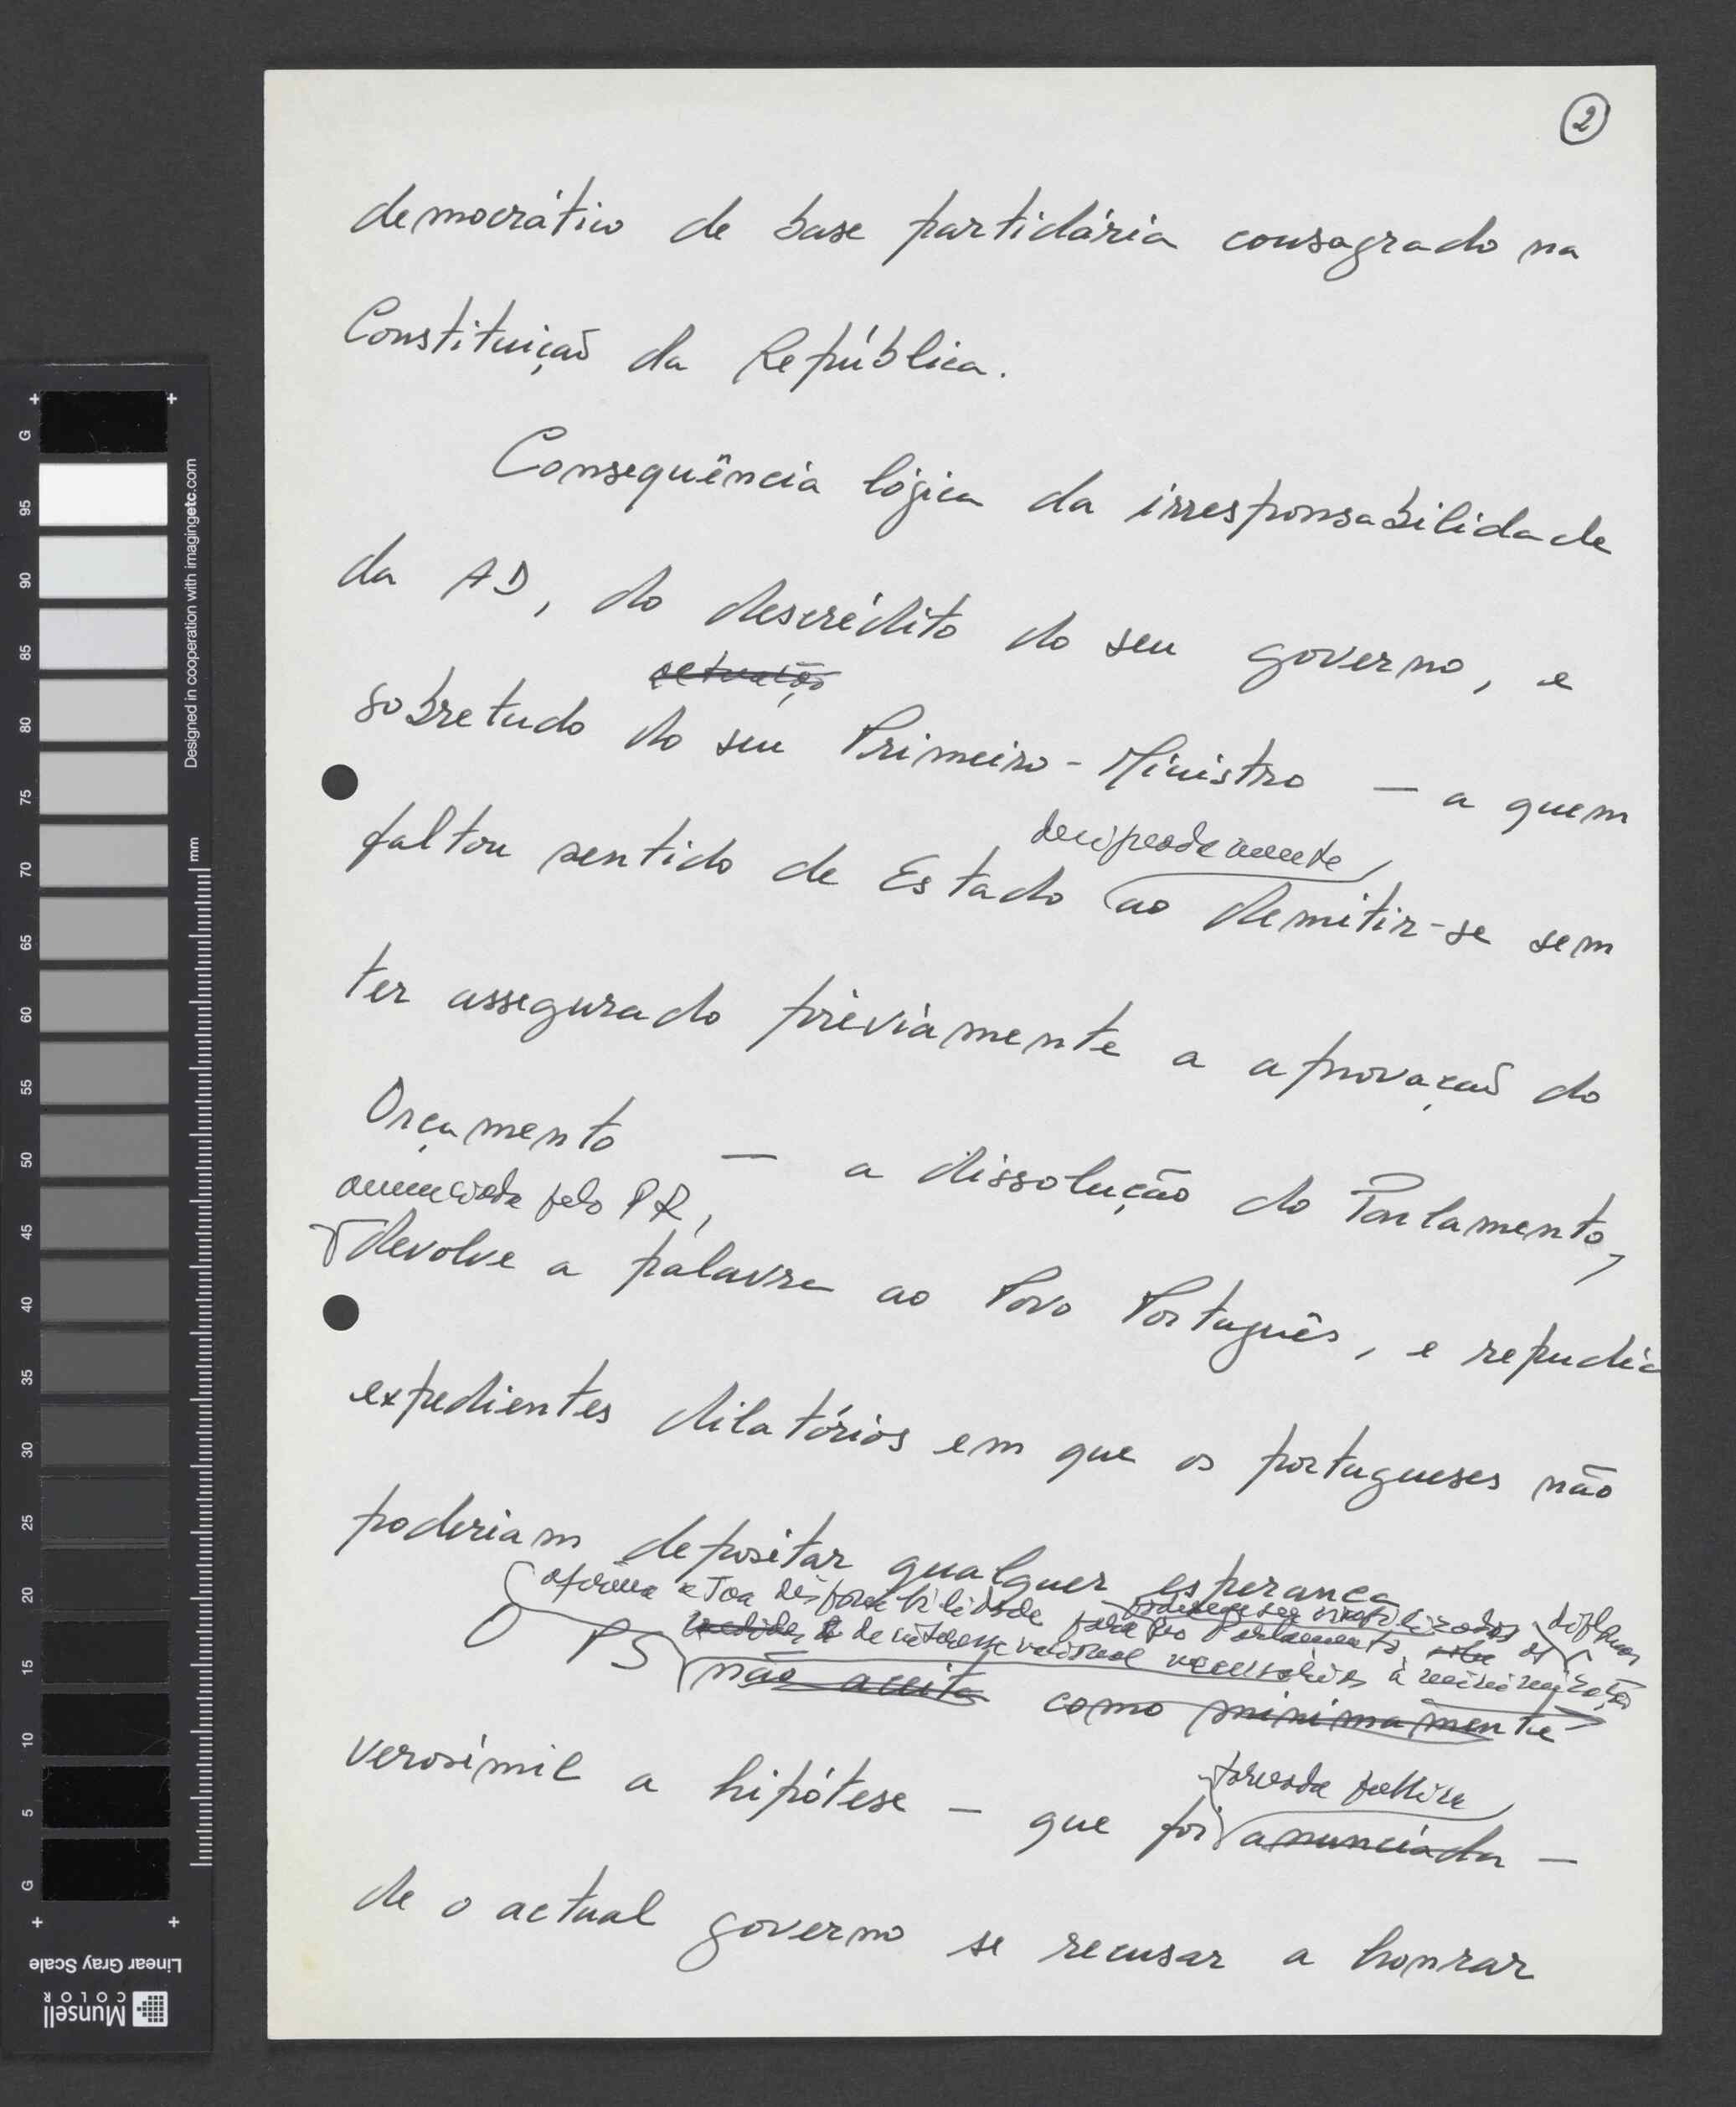 2
democrático de base partidária consagrado na
Constituição da República.
Consequência lógica da irresponsabilidade
da AD, do descrédito do seu governo, e
actuação
sobretudo do seu Primeiro-Ministro — a quem
faltou sentido de Estado ao demitir-se sem
ter assegurado prèviamente a aprovação do
Orçamento — a dissolução do Parlamento,
anunciada pelo PR,
devolve a palavra ao Povo Português, e repudia
expedientes dilatórios em que os portugueses não
poderiam depositar qualquer esperança
afirma a sua disponibilidade para no Parlamento, os diplomas
de interesse nacional necessários à
O PS não aceita como minimamente
verosímil a hipótese — que foi anunciada —
tornada pública
de o actual governo se recusar a honrar
G
95
90
85
80
75
70
65
60
55
50
45
40
35
30
25
20
15
10
5
G
mm
Designed in cooperation with imagingetc.com
Linear Gray Scale
Munsell
COLOR